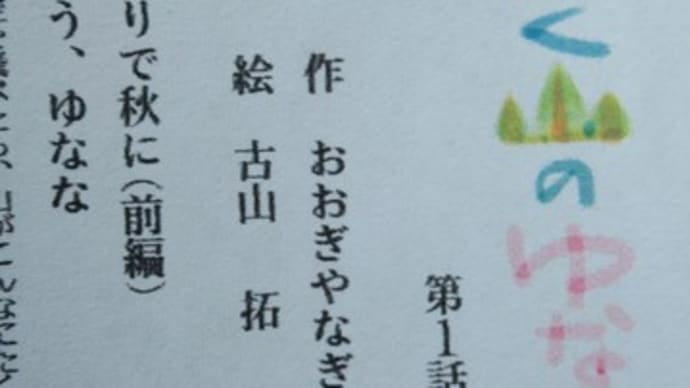 く山のゆな
第1話
作 おおぎやなぎ
絵 古山 拓
りで秋に(前編)
う、ゆなな